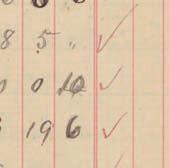 8 5 „ ✓
0 0 10 ✓
19 6 ✓